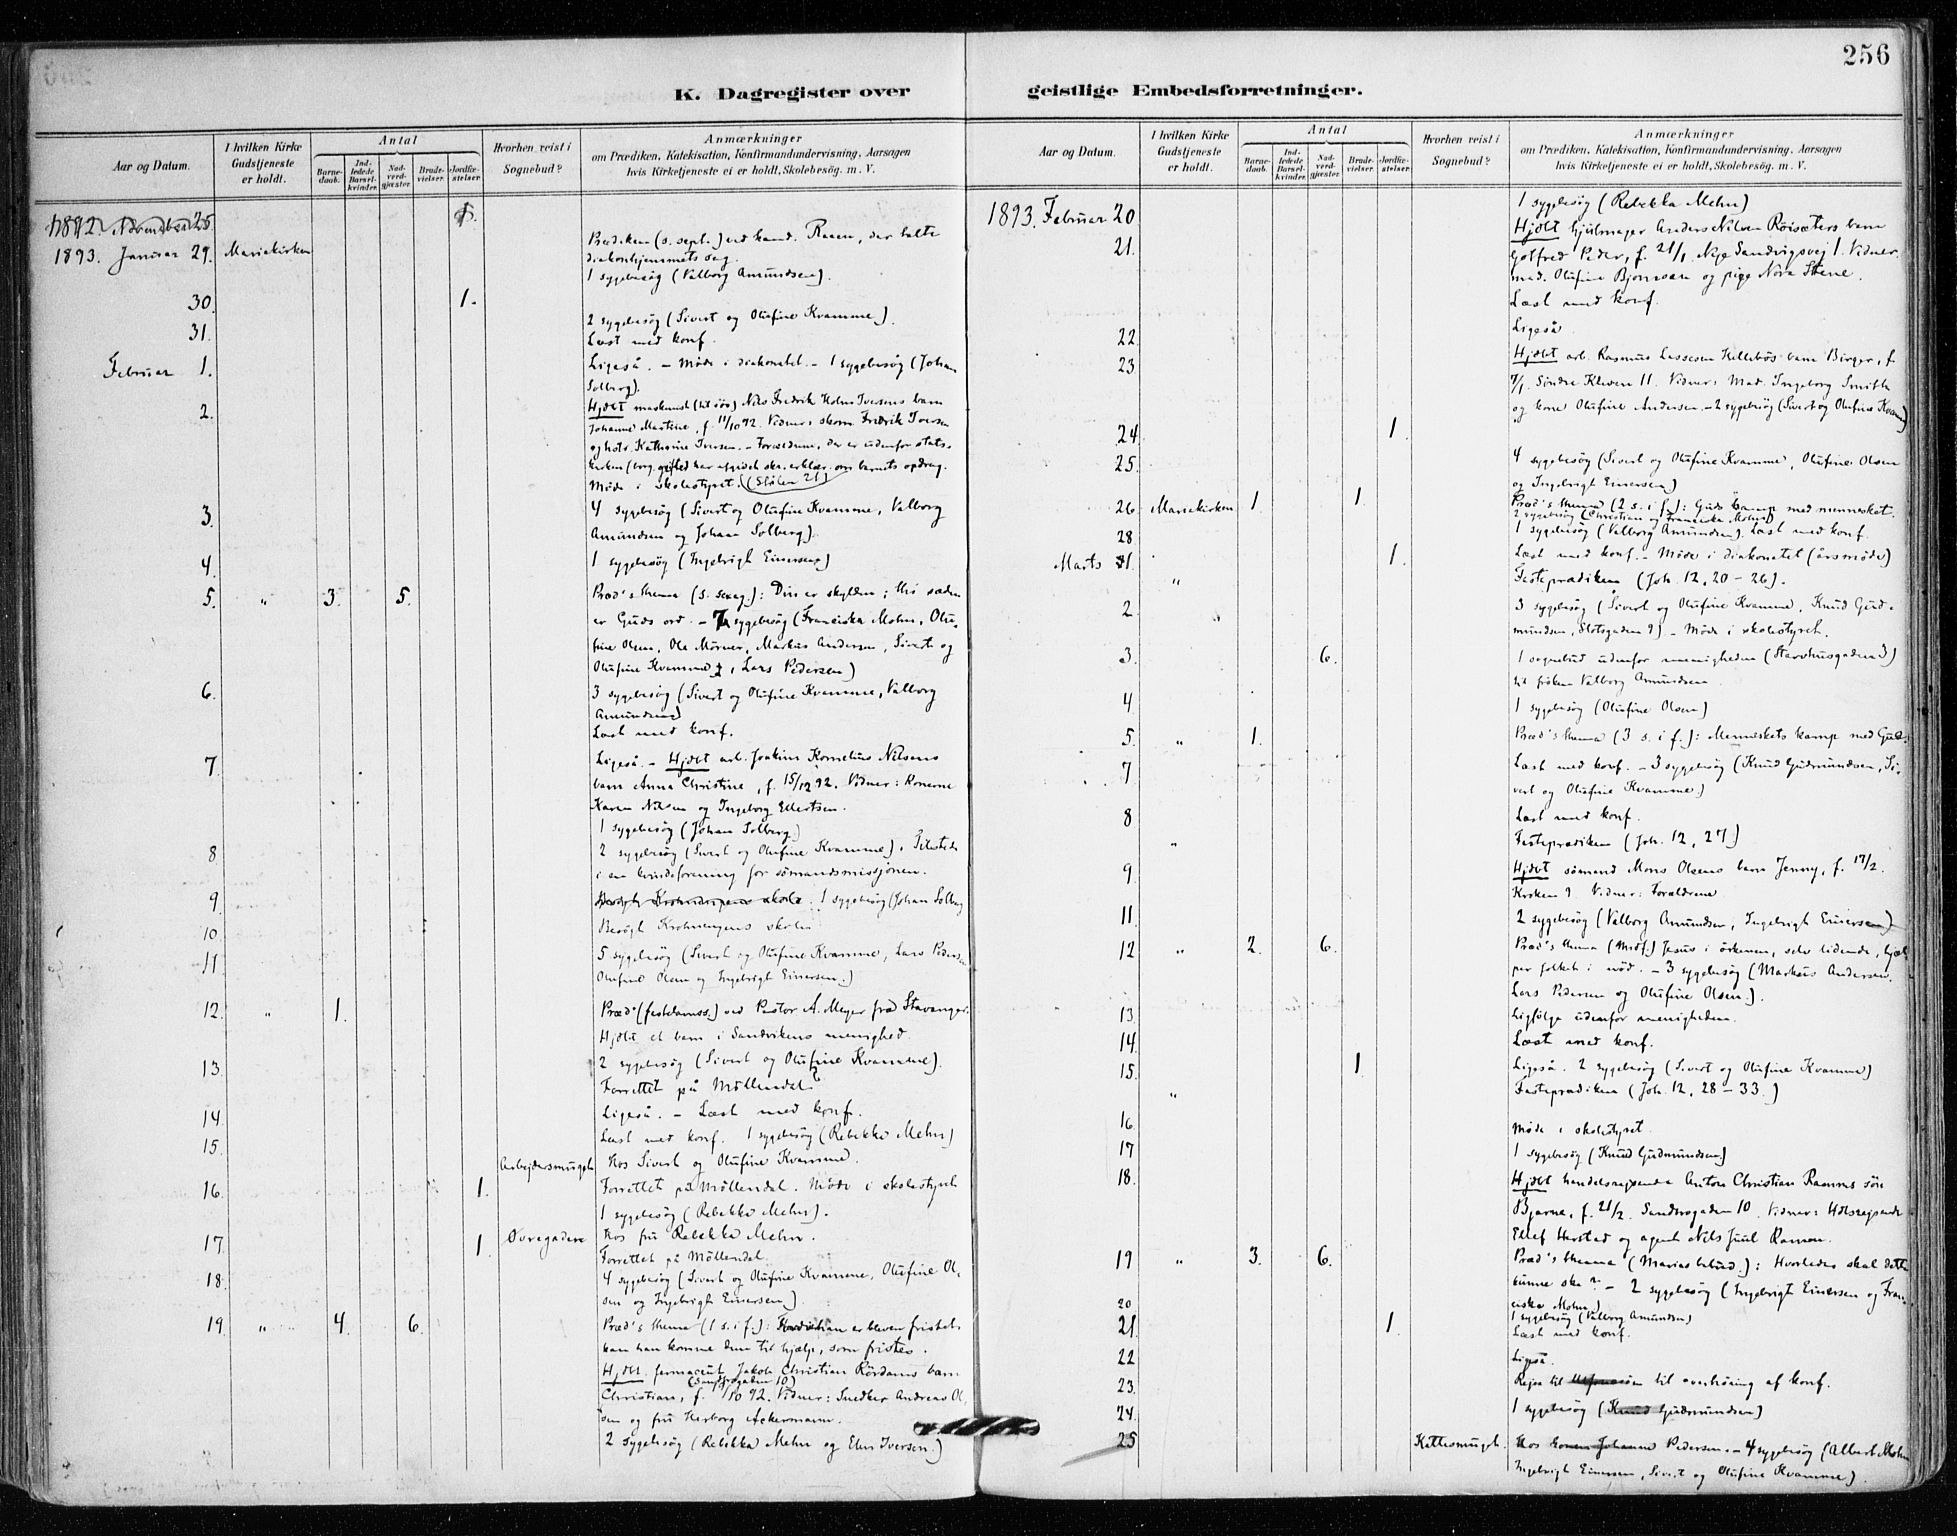 256
K. Dagregister over geistlige Embedsforretninger.
Aar og Datum.
I hvilken Kirke Gudstjeneste er holdt.
Antal
Barnedaab.
Indledede Barselkvinder.
Nadverdgjæster
Brudevielser.
Jordfæstelser.
Hvorhen reist i Sognebud?
Anmærkninger
om Prædiken, Katekisation, Konfirmandundervisning, Aarsagen
hvis Kirketjeneste ei er holdt, Skolebesøg. m. V.
1893. Januar 29. Mariekirken Prædiken (s. sept.) ved kand. Raaen, der holte
diakonhjemmets sag.
1 sygebesøg (Valborg Amundsen).
30. 1.
2 sygebesøg (Sivert og Olufine Kvamme).
31. Læst med konf.
Februar 1. Ligeså. - Møde i diakonatet. - 1 sygebesøg (Johan
Solberg).
2. Hjdbt maskinist (til søs) Nils Fredrik Holm Iversens barn
Johanne Martine, f. 11/10 92. Vidner: skom. Fredrik Iversen
og hstr. Kathrine Iversen. - Forældrene, der er udenfor stats-
kirken (borg. gifted har afgivet skr. erklær. om barnets opdrag.
Møde i skolestyret. (Stølen 21)
3. 4 sygebesøg (Sivert og Olufine Kvamme, Valborg
Amundsen og Johan Solberg).
4. 1 sygebesøg (Ingebrigt Einersen)
5. " 3. 5. Præd's thema (s. sexag.): Din er skylden; thi sæden
er Guds ord. - 7 sygebesøg (Franciska Mohn, Olu-
fine Olsen, Ole Mörner, Markus Andersen, Sivert og
Olufine Kvamme, Lars Pedersen)
6. 3 sygebesøg (Sivert og Olufine Kvamme, Valborg
Amundsen)
Læst med konf.
7 Ligeså. - Hjdbt arb. Joakim Kornelius Nilsens
barn Anna Christine, f. 15/12 92. Vidner: Konerne
Karen Nilsen og Ingeborg Ellertsen.
1 sygebesøg (Johan Solberg.)
8 2 sygebesøg (Sivert og Olufine Kvamme).
i en kvindeforening for sømandsmissjonen.
9 1 sygebesøg (Johan Solberg
10 Besøgt Krohnengens skole
11 5 sygebesøg (Sivert og Olufine Kvamme, Lars Pedersen
Olufine Olsen og Ingebrigt Einersen.)
12. " 1. Præd. ved Pastor A. Meyer fra Stavanger.
Hjdbt et barn i Sandvikens menighed.
13. 2 sygebesøg (Sivert og Olufine Kvamme).
Forrettet på Möllendal
14 Ligeså. - Læst med konf.
15. Læst med konf. 1 sygebesøg (Rebekka Mehn)
Hos Sivert og Olufine Kvamme.
16. 1. Forrettet på Möllendal. Møde i skolestyret
1 sygebesøg (Rebekka Mehn).
17. 1 Øvregaden Hos fru Rebekka Mehn.
Forrettet på Möllendal.
18. 4 sygebesøg (Sivert og Olufine Kvamme, Olufine Ol-
sen og Ingebrigt Einersen)
19. " 4. 6. Præd's thema (1 s. i f.): er bleven fristet
kan han komme dem til hjælp, som fristes.
Hjdbt. farmaceut Jakob Christian Rördams barn
Christian, f. 11/10 92. Vidner: Snedker Andreas Ol-
sen og fru Herborg Ackermann.
2 sygebesøg (Rebekka Mehn og Iversen.)
Aar og Datum.
I hvilken Kirke Gudstjeneste er holdt.
Antal
Barnedaab.
Indledede Barselkvinder.
Nadverdgjæster
Brudevielser.
Jordfæstelser.
Hvorhen reist i Sognebud?
Anmærkninger
om Prædiken, Katekisation, Konfirmandundervisning, Aarsagen
hvis Kirketjeneste ei er holdt, Skolebesøg. m. V.
1893. Februar 20 1 sygebesøg (Rebekka Mehn)
21. Hjdbt hjulmager Anders Nilsen Röisæters barn
Gotfred Peder, f. 21/1, Nye Sandvigsvej 1. Vidner.
mad. Olufine Bjornsen og pige Nora Stene.
Læst med konf.
22 Ligeså.
23 Hjdbt arb. Rasmus Lassesen barn Birger, f.
7/1. Søndre Kleven 11. Vidner: Mad. Ingeborg Smith
og kone Olufine Andersen. - 2 sygebesøg (Sivert og Olufine Kvamme)
24 1.
25. 4 sygebesøg (Sivert og Olufine Kvamme, Olufine Olsen
og Ingebrigt Einersen)
26 Mariekirken 1 1 Præd's thema (2 s. i f.): Guds kamp med mennesket.
2 sygebesøg (Christian og Franciska Mohn)
28 1 sygebesøg (Valborg Amundsen). Læst med konf.
Marts 1. 1. Læst med konf. - Møde i diakonatet (årsmøde)
" Fasteprædiken (Joh. 12, 20 - 26).
2 3 sygebesøg (Sivert og Olufine Kvamme, Knud Gud-
mundsen, Slotsgaden 9) - Møde i skolestyret.
3. 6. 1 sognebud udenfor menigheden
til frøken Valborg Amundsen
4 1 sygebesøg (Olufine Olsen)
5. " 1. Præd's thema (3 s. i f.): Menneskets kamp med Gud.
7 Læst med konf. - 3 sygebesøg (Knud Gudmundsen, Si-
vert og Olufine Kvamme)
8 Læst med konf.
" Fasteprædiken (Joh. 12, 27)
9 Hjdbt sømand Mons Olsens barn Jenny, f. 17/2.
Vidner: Forældrene
11. 2 sygebesøg (Valborg Amundsen, Ingebrigt Einersen)
12 " 2. 6. Præd's thema (midf.) Jesus i ørkenen, selv lidende, hjæl-
per folket i nöd. - 3 sygebesøg (Markus Andersen.
Lars Pedersen og Olufine Olsen.).
13. Ligfølge udenfor menigheden.
14. Læst med konf.
15. 1 Ligeså. 2 sygebesøg (Sivert og Olufine Kvamme)
" Fasteprædiken (Joh. 12, 28 - 33.)
16 Møde i skolestyret.
17 1 sygebesøg (Knud Gudmundsen)
18. Hjdbt handelsrejsende Anton Christian Ramms søn
Bjarne, f. 21/2. Sandvigaden 10. Vidner:
Ellef Harstad og agent Nils Juul Ramm.
19 " 3. 6. Præd's thema (Marias bebud.): Hvorledes skal dette
kunne ske? - 2 sygebesøg (Ingebrigt Einersen og Fran-
ciska Mohn)
20 1 sygebesøg (Valborg Amundsen)
21 1 Læst med konf.
22 Ligeså.
23. Rejse til til overhöring af konf.
24. 1 sygebesøg (Knud Gudmundsen)
25 Hos konen Johanne Pedersen. - 4 sygebesøg (Albert Mohn
Ingebrigt Einersen, Sivert og Olufine Kvamme).